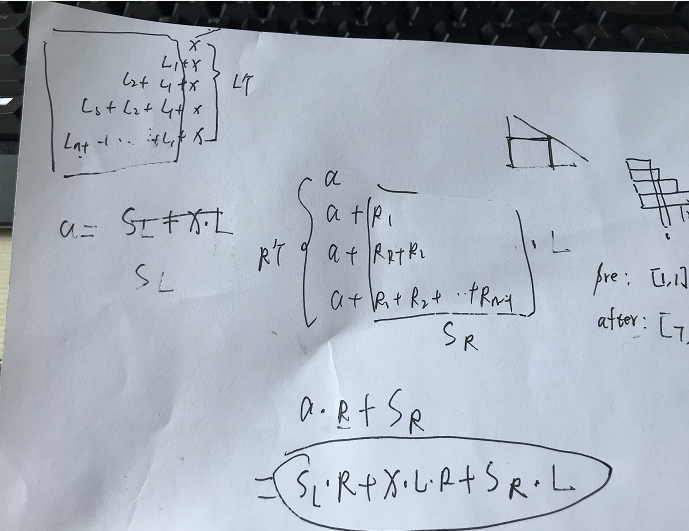 x
L1+x
L2+ L1+x
L3+L2+L1+x
Ln+ -1 ... +L1+x
L个
a= SL+x·L
SL
R个
a
a+R1
a+R2+R1
a+R1+R2+ ··+Rn-1
· L
SR
pre: [1,1]
after: [7,
a·R+SR
= SL·R+x·L·R+SR·L